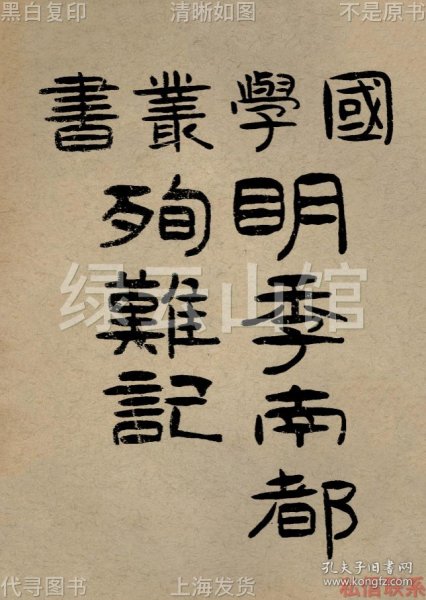 黑白复印 清晰如图 不是原书
國學叢書
明季南都
殉難記
绿云山馆
孔夫子旧书网
www.kongfz.com
代寻图书 上海发货 私信联系